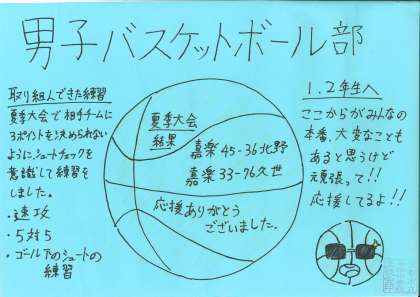 男子バスケットボール部
取り組んできた練習
夏季大会で相手チームに
3ポイントを決められない
ようにシュートチェックを
意識して練習を
しました。
・速攻
・5対5
・ゴール下のシュートの
練習
夏季大会
結果
嘉楽45-36北野
嘉楽33-76久世
応援ありがとう
ございました。
1.2年生へ
ここからがみんなの
本番、大変なことも
あると思うけど
頑張って!!
応援してるよ!!